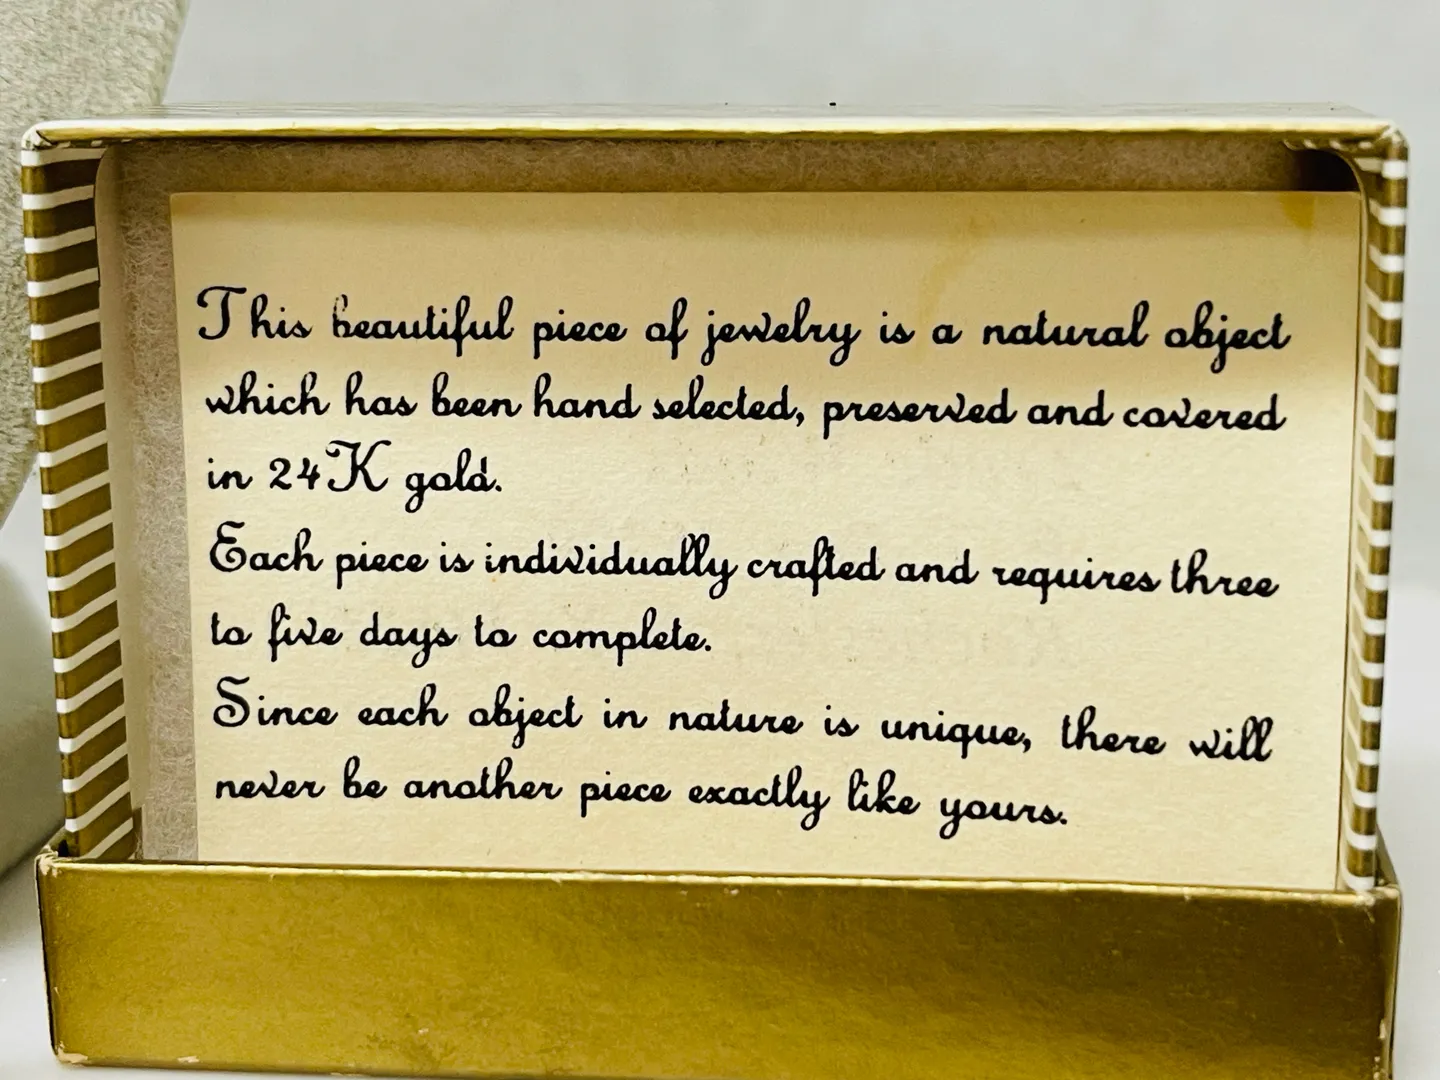 This beautiful piece of jewelry is a natural object
which has been hand selected, preserved and covered
in 24K gold.
Each piece is individually crafted and requires three
to five days to complete.
Since each object in nature is unique, there will
never be another piece exactly like yours.